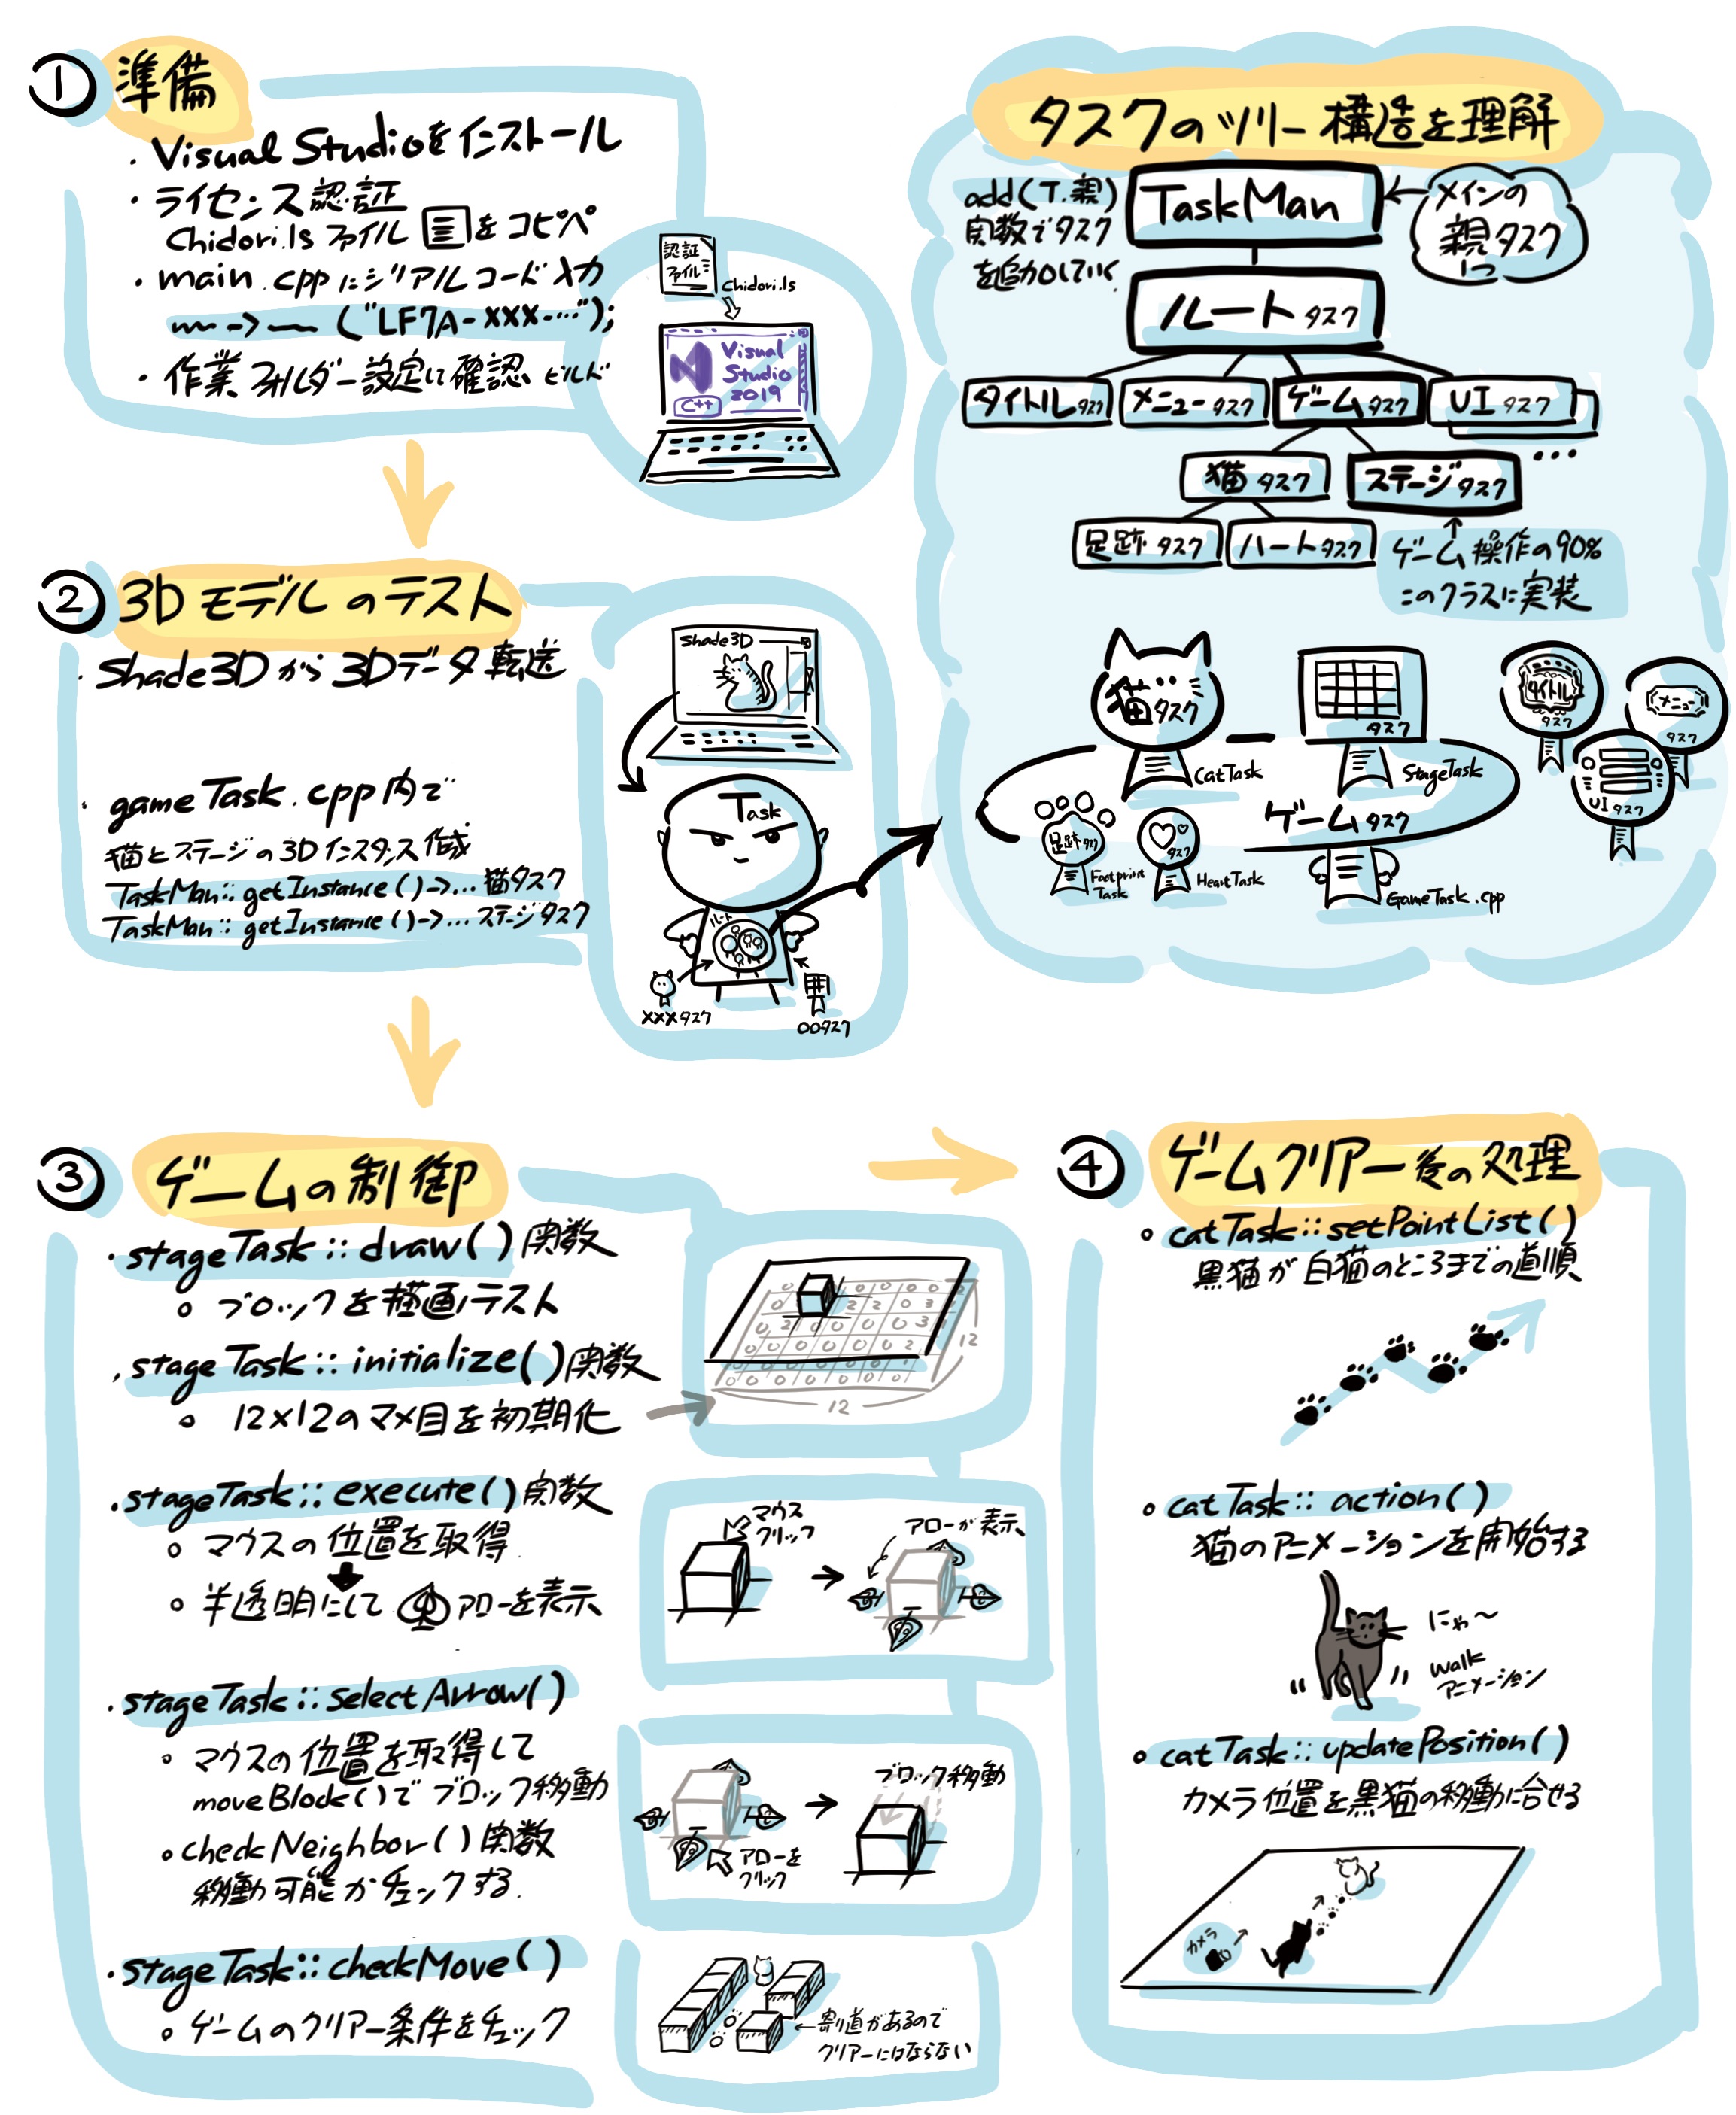 ① 準備
・Visual Studioをインストール
・ライセンス認証
Chidori.ls ファイル をコピペ
・main.cppにシリアルコード入力
〜->〜("LF7A-XXX-…");
・作業フォルダー設定して確認 ビルド
認証
ファイル
Chidori.ls
Visual
Studio
2019
C++
タスクのツリー構造を理解
add(T.親)
関数でタスク
を追加していく
TaskMan
メインの
親タスク
ルートタスク
タイトルタスク
メニュータスク
ゲームタスク
UIタスク
猫タスク
ステージタスク
…
足跡タスク
ハートタスク
ゲーム操作の90%
このクラスに実装
猫タスク
CatTask
タスク
StageTask
タイトル
タスク
メニュー
タスク
UIタスク
足跡タスク
Footprint
Task
タスク
HeartTask
ゲームタスク
GameTask.cpp
② 3Dモデルのテスト
・Shade3Dから3Dデータ転送
・gameTask.cpp内で
猫とステージの3Dインスタンス作成
TaskMan::getInstance()->…猫タスク
TaskMan::getInstance()->…ステージタスク
Shade3D
Task
ルート
XXXタスク
OOタスク
③ ゲームの制御
・stageTask::draw()関数
○ ブロックを描画テスト
・stageTask::initialize()関数
○ 12×12のマス目を初期化
12
12
・stageTask::execute()関数
○ マウスの位置を取得
○ 半透明にして アローを表示
マウス
クリック
アローが表示
・stageTask::selectArrow()
○ マウスの位置を取得して
moveBlock()でブロック移動
○ checkNeighbor()関数
移動可能かチェックする
アローを
クリック
ブロック移動
・stageTask::checkMove()
○ ゲームのクリアー条件をチェック
←割り道があるので
クリアーにはならない
④ ゲームクリアー後の処理
○ catTask::setPointList()
黒猫が白猫のところまでの道順
○ catTask::action()
猫のアニメーションを開始する
にゃ〜
walk
アニメーション
○ catTask::updatePosition()
カメラ位置を黒猫の移動に合せる
カメラ